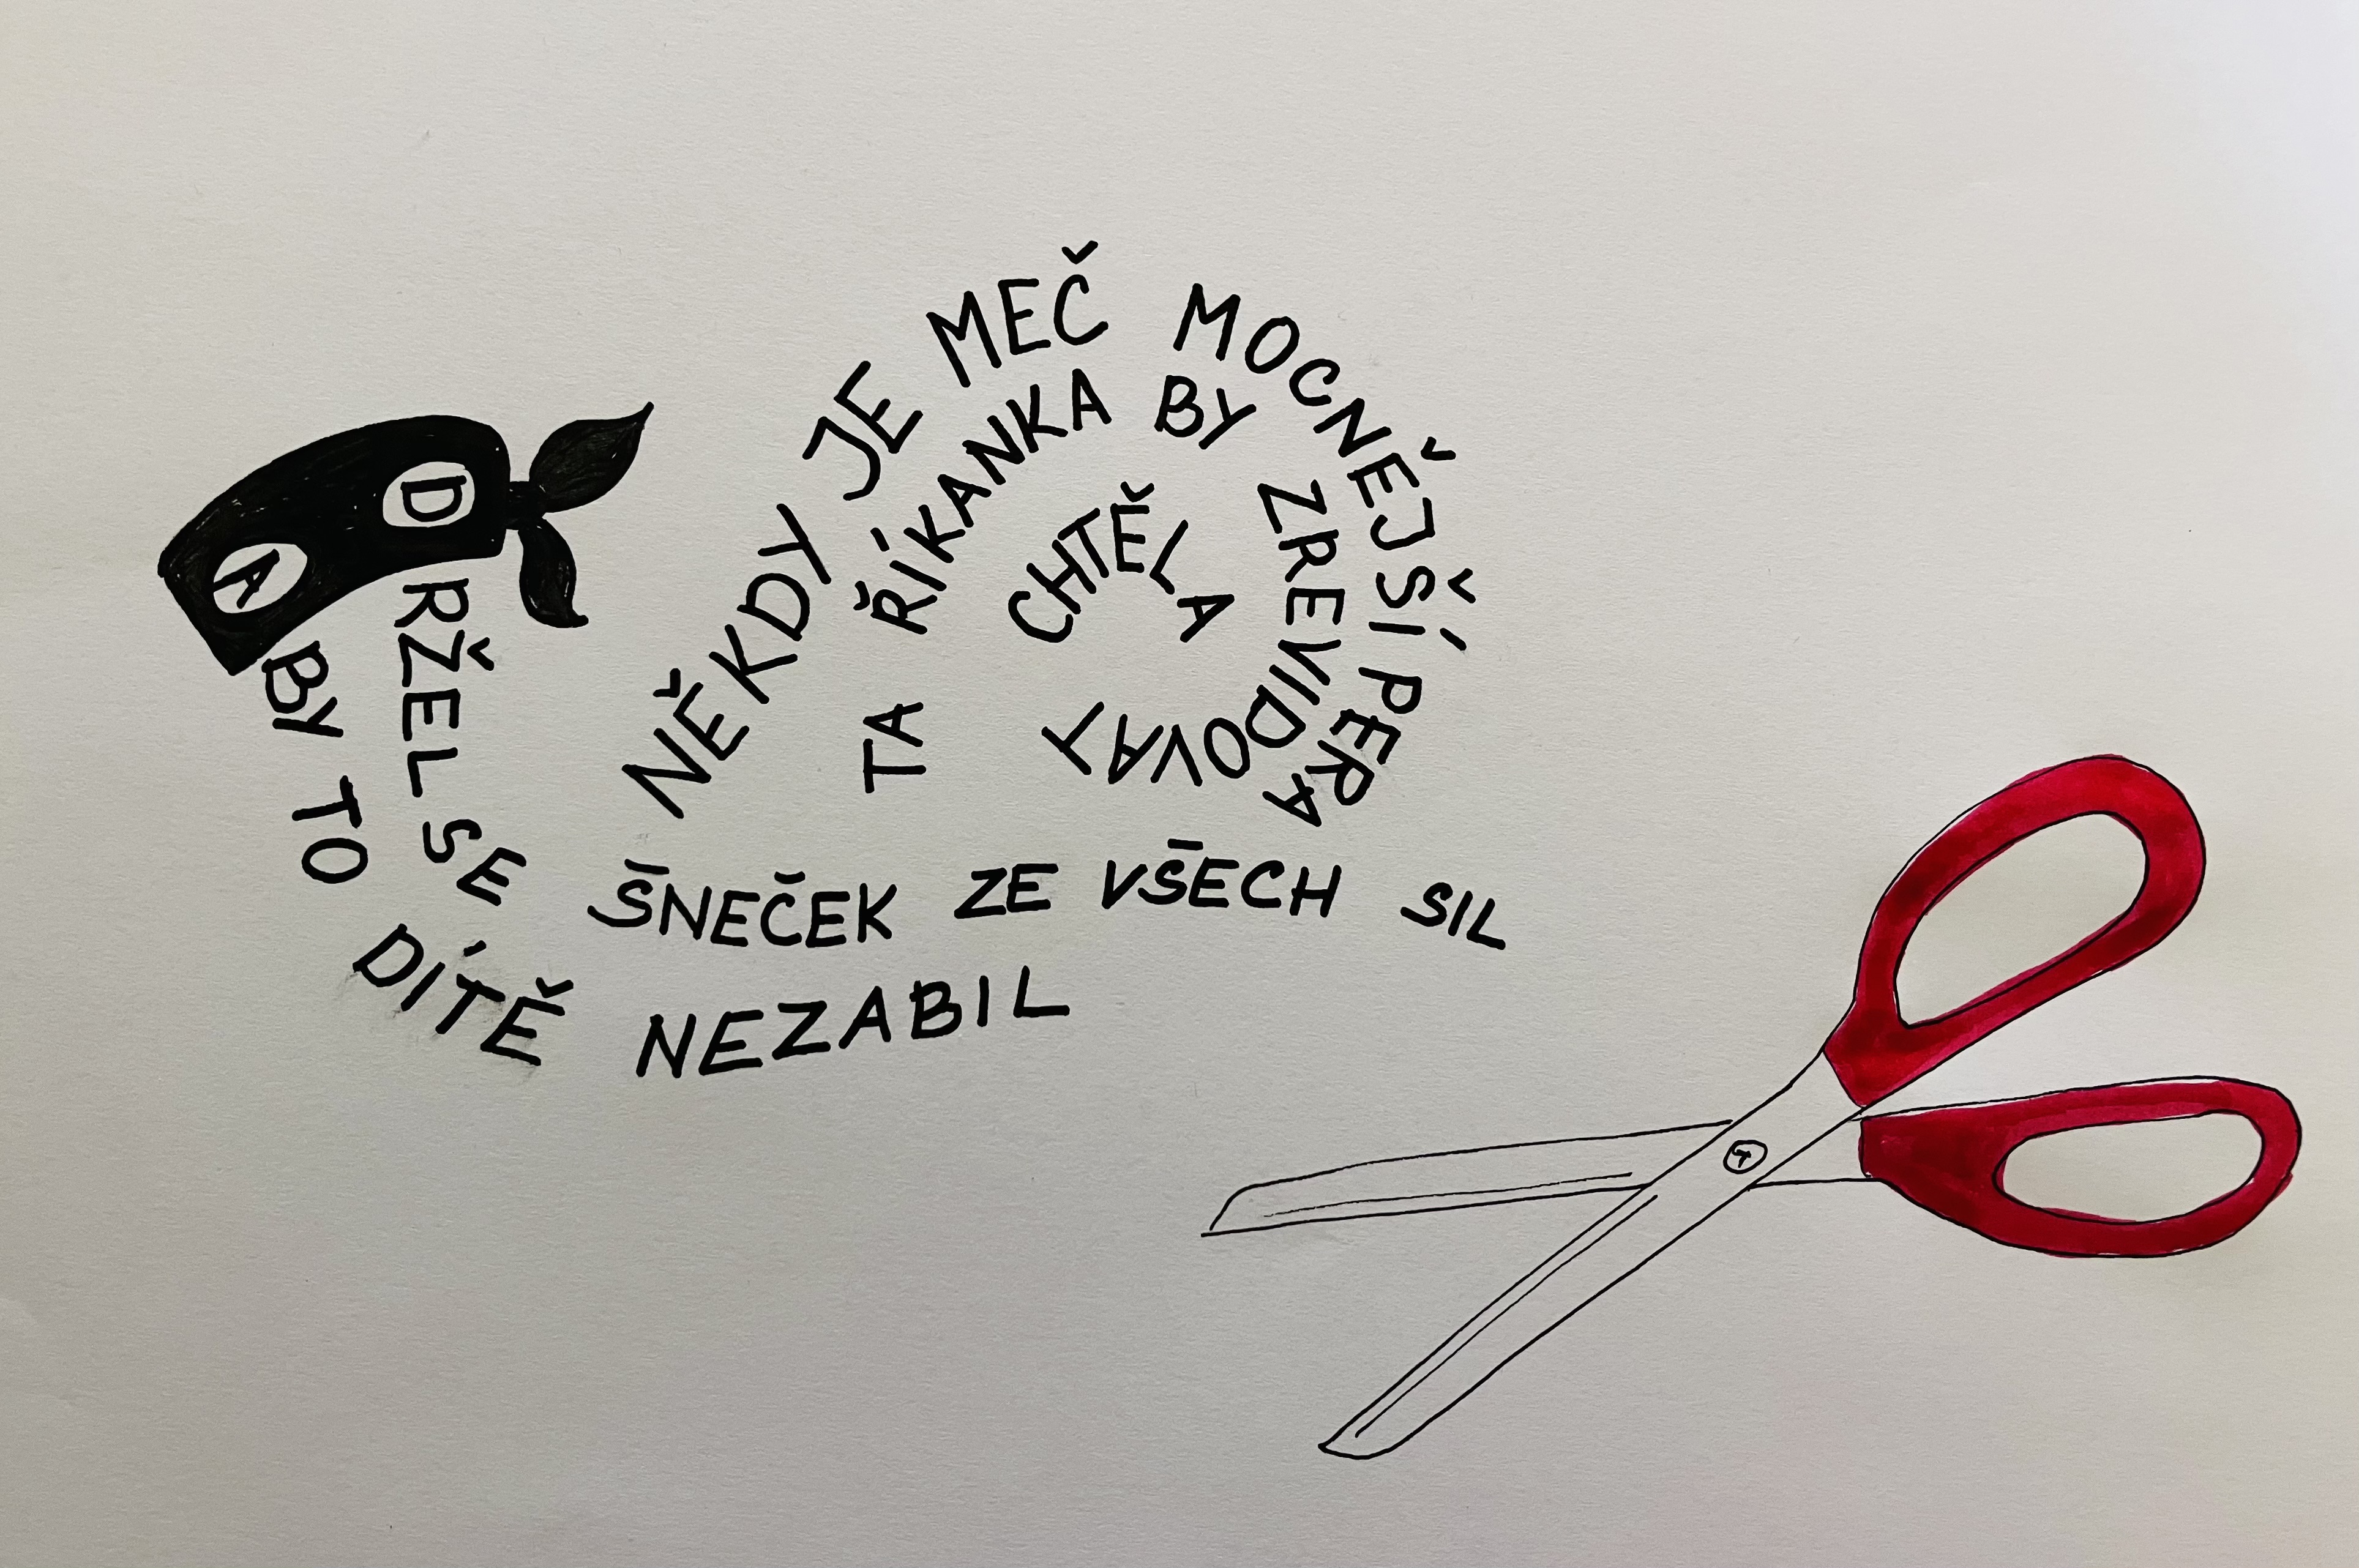 DRŽEL SE ŠNEČEK ZE VŠECH SIL
ABY TO DÍTĚ NEZABIL
NĚKDY JE MEČ MOCNĚJŠÍ PERA
TA ŘÍKANKA BY ZREVIDOVAT CHTĚLA